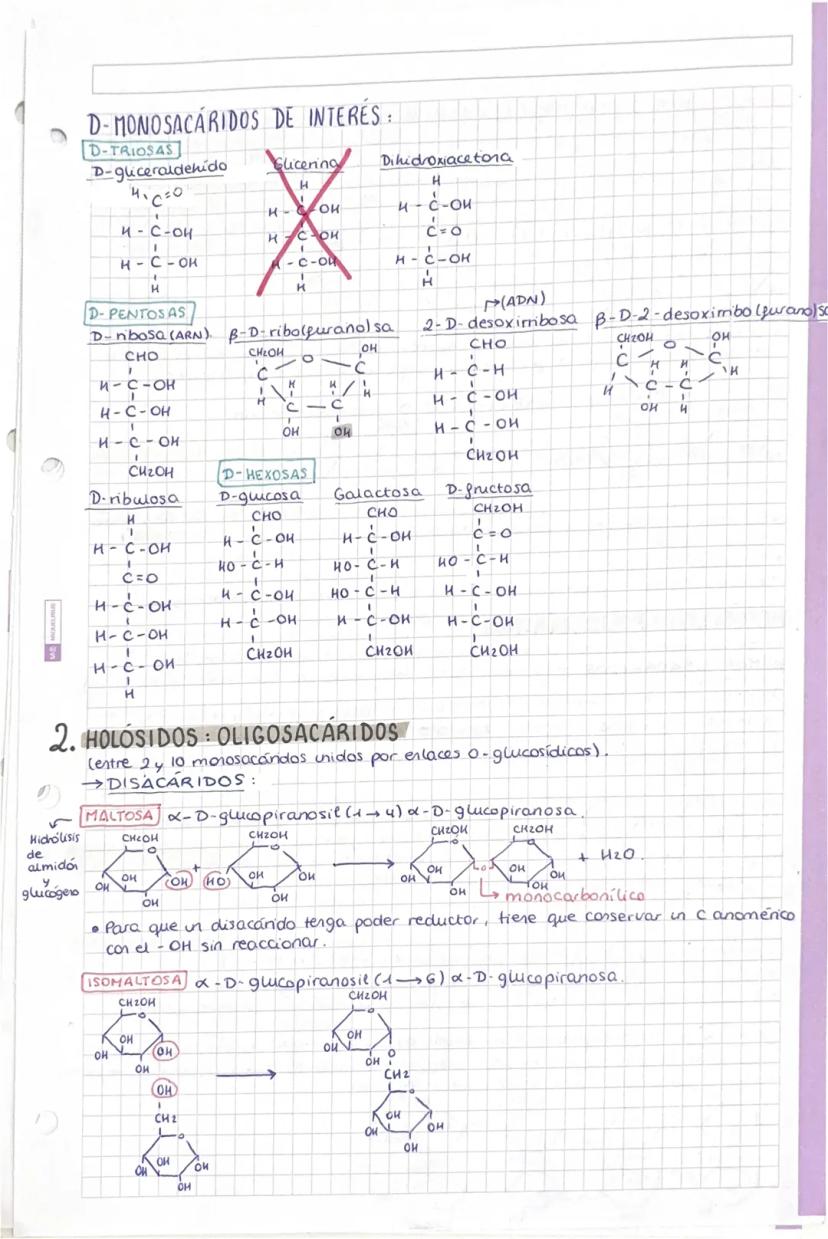 D-MONOSACÁRIDOS DE INTERÉS:
D-TRIOSAS
D-gliceraldehído Glicerina Dihidroxiacetona
H H
H C=O H-C-OH H-C-OH
H-C-OH H-C-OH C=O
H-C-OH H-C-OH H-C-OH
H H H
→(ADN)
D-PENTOSAS
D-ribosa (ARN) β-D-ribo(furano)sa 2-D-desoxirribosa β-D-2-desoxirribo(furano)s
CHO CH2OH O OH CHO CH2OH O OH
H-C-OH C C H-C-H C C
H-C-OH H H H H H-C-OH H H H H
H-C-OH C-C H-C-OH C-C
CH2OH OH OH CH2OH OH H
D-HEXOSAS
D-ribulosa D-glucosa Galactosa D-fructosa
H CHO CHO CH2OH
H-C-OH H-C-OH H-C-OH C=O
C=O HO-C-H HO-C-H HO-C-H
H-C-OH H-C-OH HO-C-H H-C-OH
H-C-OH H-C-OH H-C-OH H-C-OH
H-C-OH CH2OH CH2OH CH2OH
H
MIQUELRIUS
2. HOLÓSIDOS: OLIGOSACÁRIDOS
(entre 2 y 10 monosacáridos unidos por enlaces O-glucosídicos).
→ DISACÁRIDOS:
MALTOSA α-D-glucopiranosil (1→4) α-D-glucopiranosa.
Hidrólisis
de
almidón
y
glucógeno
CH2OH CH2OH CH2OH CH2OH
O + O → O O + H2O.
OH OH OH HO OH OH OH OH O OH OH
OH OH OH OH
monocarbonílico
• Para que un disacárido tenga poder reductor, tiene que conservar un C anomérico
con el -OH sin reaccionar.
ISOMALTOSA α-D-glucopiranosil (1→6) α-D-glucopiranosa.
CH2OH CH2OH
O O
OH OH OH OH OH O
OH OH
OH CH2
CH2 O
O OH OH OH
OH OH OH OH
OH